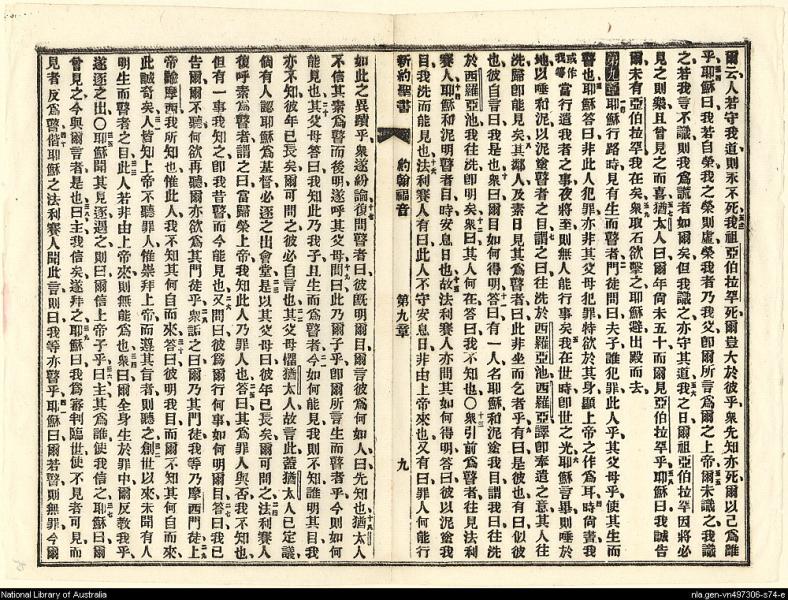 爾云人若守我道則永不死我祖亞伯拉罕死爾豈大於彼乎衆先知亦死爾以己爲誰
乎耶穌曰我若自榮我之榮則虛榮我者乃我父卽爾所言爲爾之上帝爾未識之我識
之若我言不識則我爲謊者如爾矣但我識之亦守其道我之日爾祖亞伯拉罕因將必
見之則樂且曾見之而喜猶太人曰爾年尚未五十而爾見亞伯拉罕乎耶穌曰我誠告
爾未有亞伯拉罕我在矣衆取石欲擊之耶穌避出殿而去
第九章耶穌行路時見有生而瞽者門徒問曰夫子誰犯罪此人乎其父母乎使其生而
瞽也耶穌答曰非此人犯罪亦非其父母犯罪特欲於其身顯上帝之作爲耳時尚晝我
或作我等當行遣我者之事夜將至則無人能行事矣我在世時卽世之光耶穌言畢則唾於
地以唾和泥以泥塗瞽者之目謂之曰往洗於西羅亞池西羅亞譯卽奉遣之意其人往
洗歸卽能見矣其鄰人及素日見其爲瞽者曰此非坐而乞者乎有曰是彼也有曰似彼
也彼自言曰我是也衆曰爾目如何得明答曰有一人名耶穌和泥塗我目謂我曰往洗
於西羅亞池我往洗卽明矣衆曰其人何在答曰我不知也〇衆引前爲瞽者往見法利
賽人耶穌和泥明瞽者目時安息日也故法利賽人亦問其如何得明答曰彼以泥塗我
目我洗而能見也法利賽人有曰此人不守安息日非由上帝來也又有曰罪人何能行
新約聖書 約翰福音 第九章 九
如此之異蹟乎衆遂紛論復問瞽者曰彼既明爾目爾言彼爲何如人曰先知也猶太人
不信其素爲瞽而後明遂呼其父母問曰此乃爾子乎卽爾所言生而瞽者乎今則如何
能見也其父母答曰我知此乃我子且生而爲瞽者今如何能見我則不知誰明其目我
亦不知彼年已長矣爾可問之彼必自言也其父母懼猶太人故言此蓋猶太人已定議
倘有人認耶穌爲基督必逐之出會堂是以其父母曰彼年已長矣爾可問之法利賽人
復呼素爲瞽者謂之曰當歸榮上帝我知此人乃罪人也答曰其爲罪人與否我不知也
但有一事我知之卽我昔瞽而今能見也又問曰彼爲爾行何事如何明爾目答曰我已
告爾爾不聽何欲再聽爾亦欲爲其門徒乎衆詬之曰爾乃其門徒我等乃摩西門徒上
帝諭摩西我所知也惟此人我不知其何自而來答曰彼明我目而爾不知其何自而來
此誠奇矣人皆知上帝不聽罪人惟崇拜上帝而遵其旨者則聽之創世以來未聞有人
明生而瞽者之目此人若非由上帝來則無能爲也衆曰爾全身生於罪中爾反教我乎
遂逐之出〇耶穌聞其見逐遇之則曰爾信上帝子乎曰主其爲誰使我信之耶穌曰爾
曾見之今與爾言者是也曰主我信矣遂拜之耶穌曰我爲審判臨世使不見者可見而
見者反爲瞽偕耶穌之法利賽人聞此言則曰我等亦瞽乎耶穌曰爾若瞽則無罪今爾
National Library of Australia
nla.gen-vn497306-s74-e